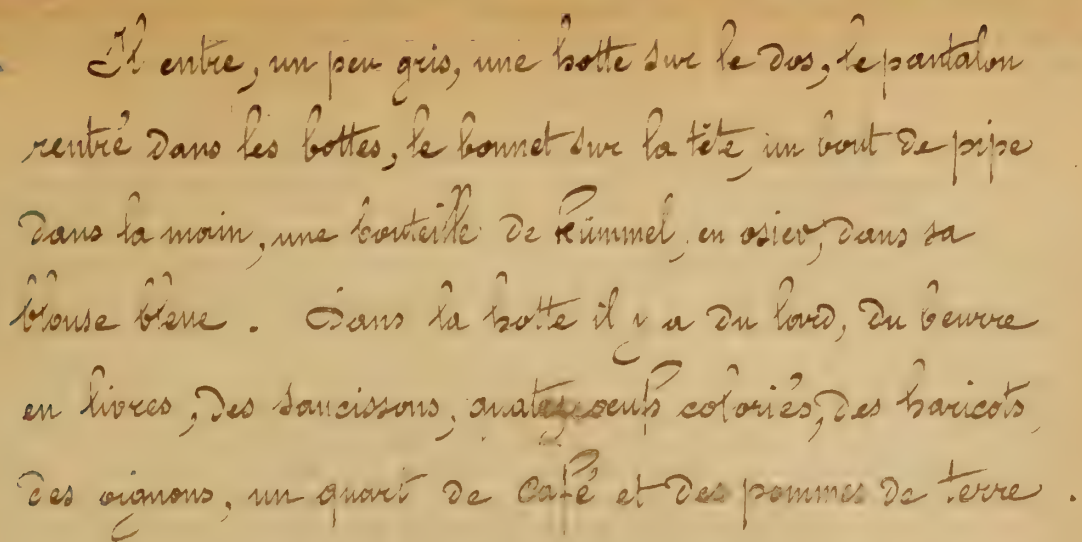 Il entre, un peu gris, une hotte sur le dos, le pantalon
rentré dans les bottes, le bonnet sur la tête, un bout de pipe
dans la main, une bouteille de Kümmel, en osier, dans sa
blouse bleue. Dans la hotte il y a du lard, du beurre
en livres, des saucissons, quatre oeufs coloriés, des haricots,
des oignons, un quart de café et des pommes de terre.